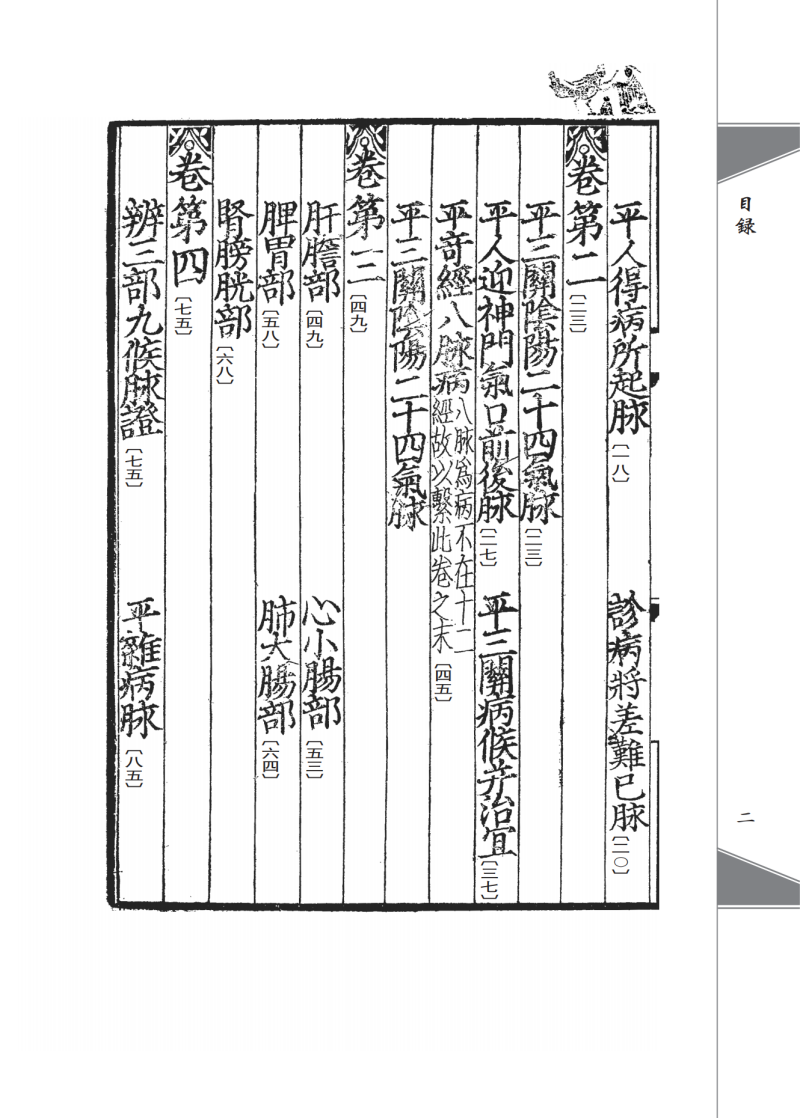 平人得病所起脉〔一八〕　診病將差難已脉〔二〇〕
卷第二〔二三〕
平三關陰陽二十四氣脉〔二三〕
平人迎神門氣口前後脉〔二七〕　平三關病候并治宜〔三七〕
平奇經八脉病八脉爲病不在十二經故以繫此卷之末〔四五〕
平三關陰陽二十四氣脉
卷第三〔四九〕
肝膽部〔四九〕　心小腸部〔五三〕
脾胃部〔五八〕　肺大腸部〔六四〕
腎膀胱部〔六八〕
卷第四〔七五〕
辨三部九候脉證〔七五〕　平雜病脉〔八五〕
目録
二